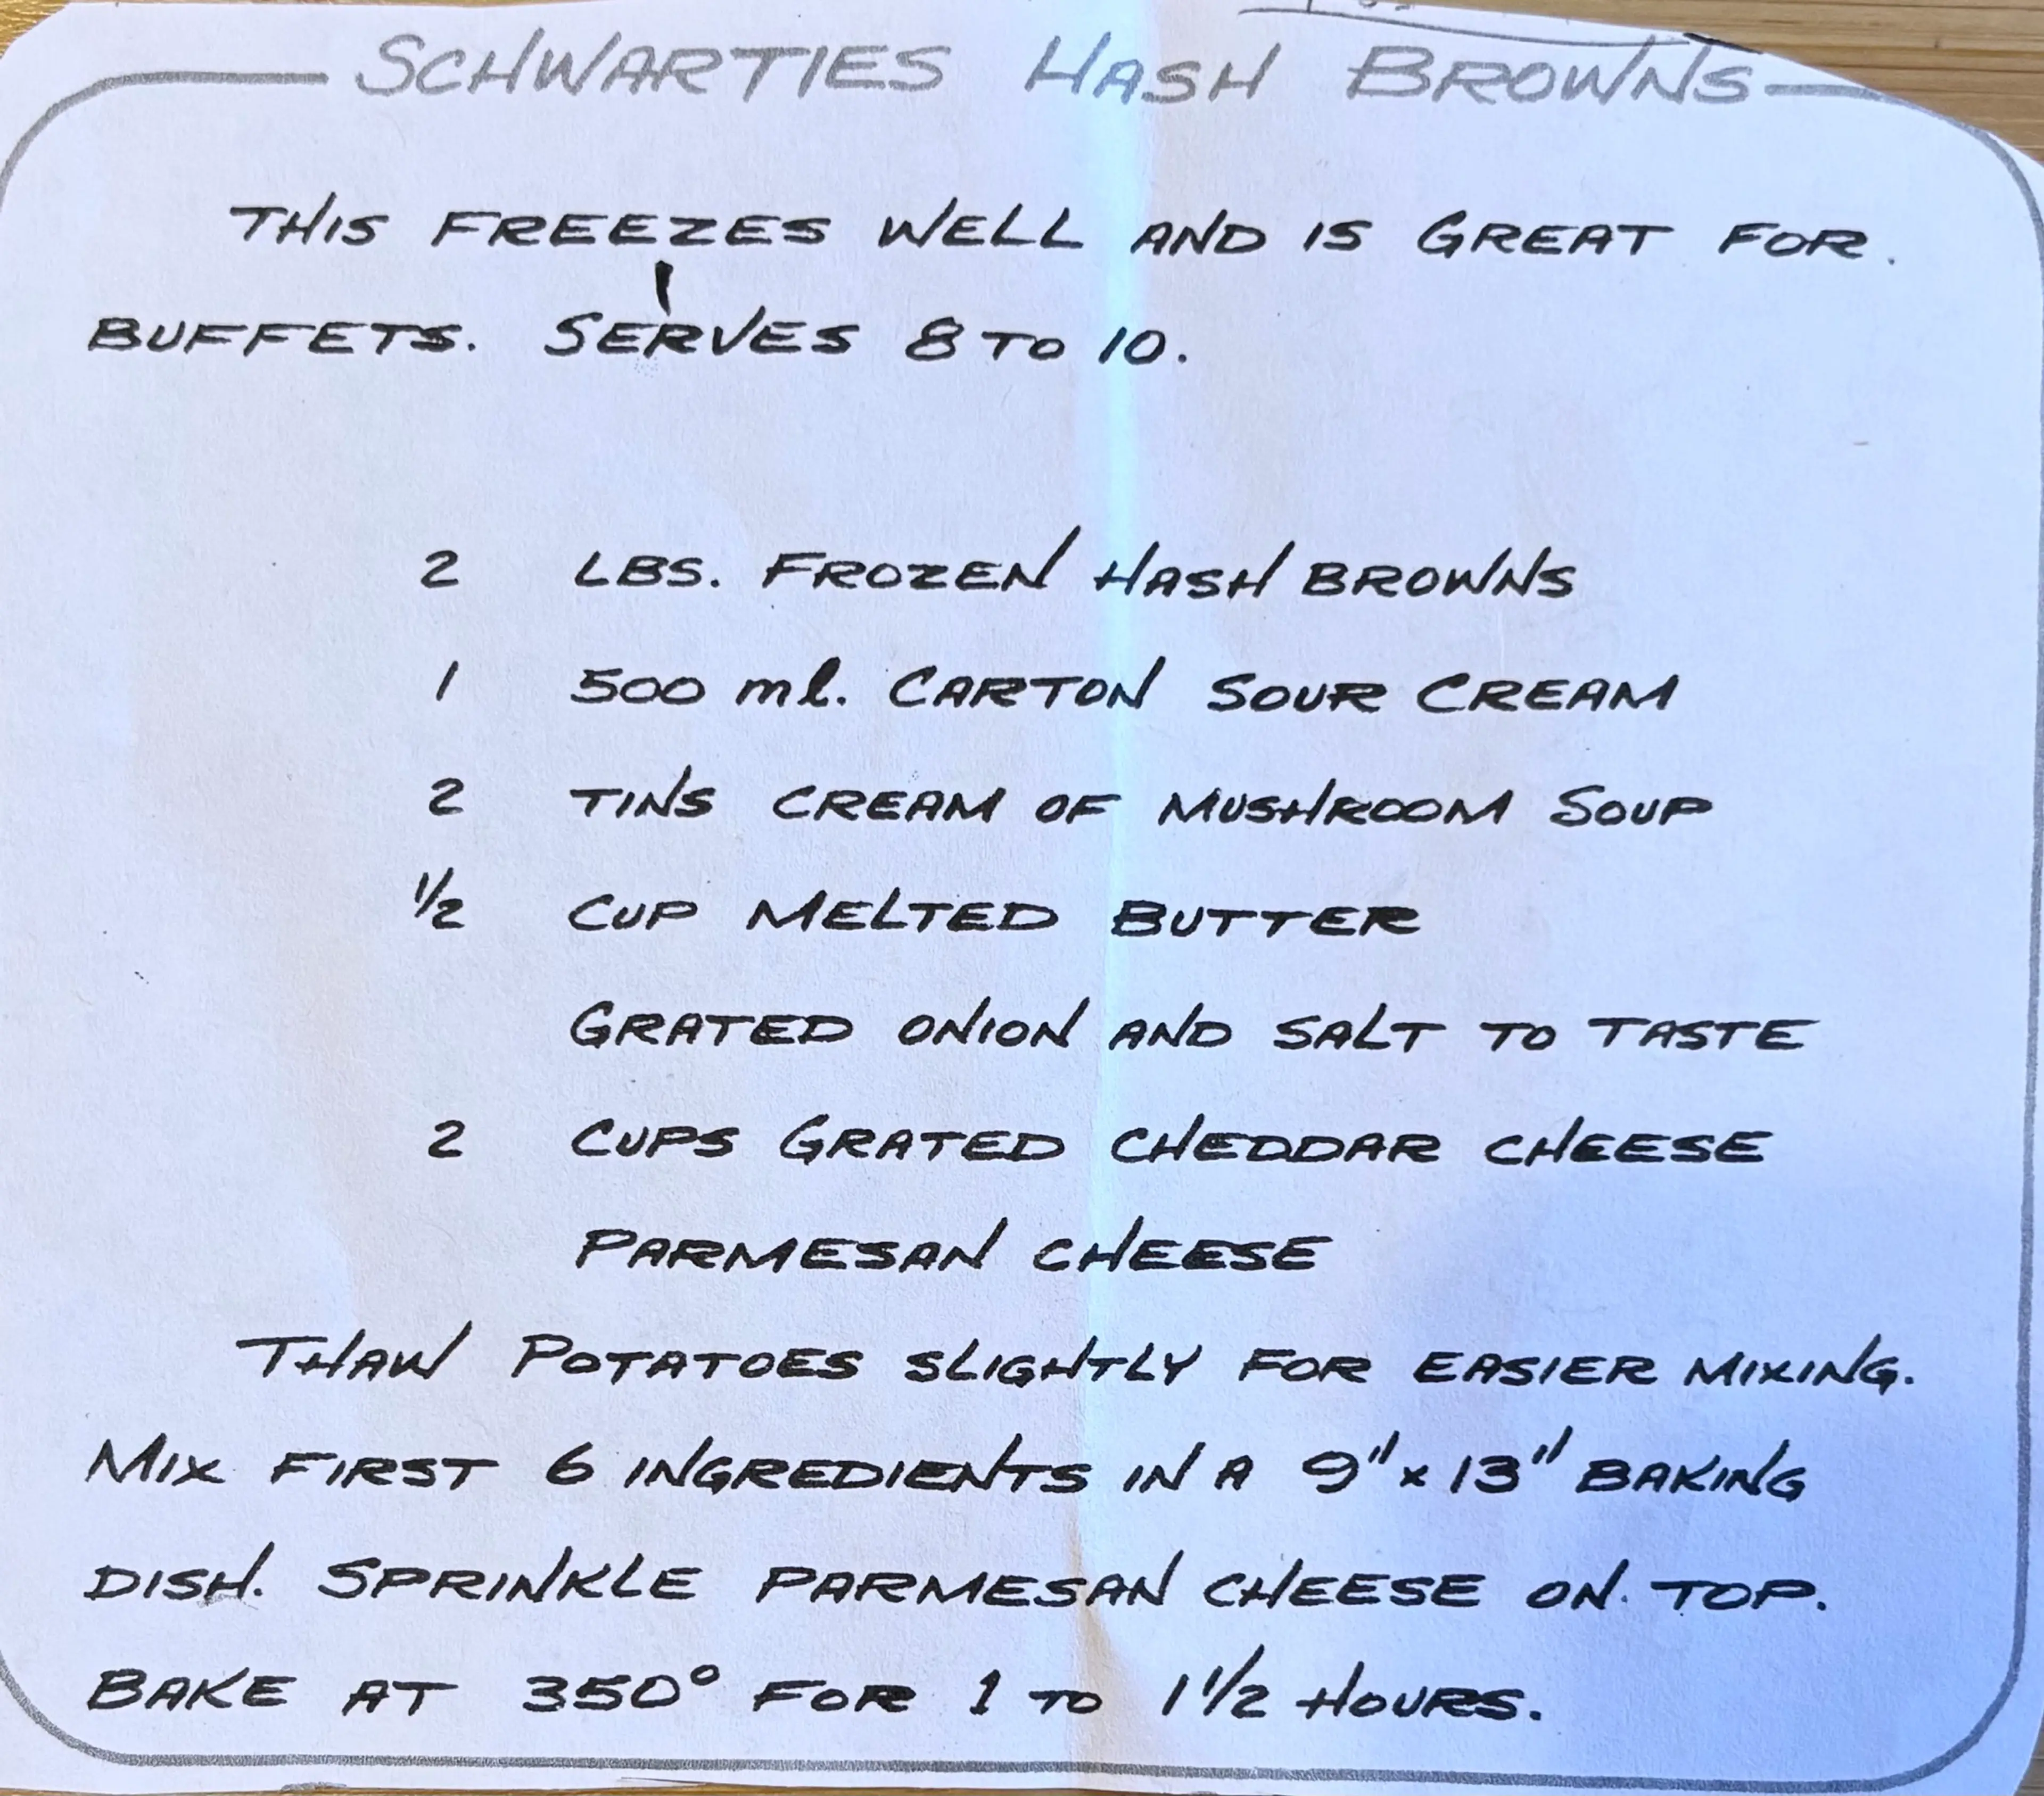 SCHWARTIES HASH BROWNS
THIS FREEZES WELL AND IS GREAT FOR
BUFFETS. SERVES 8 TO 10.
2 LBS. FROZEN HASH BROWNS
1 500 ml. CARTON SOUR CREAM
2 TINS CREAM OF MUSHROOM SOUP
1/2 CUP MELTED BUTTER
GRATED ONION AND SALT TO TASTE
2 CUPS GRATED CHEDDAR CHEESE
PARMESAN CHEESE
THAW POTATOES SLIGHTLY FOR EASIER MIXING.
MIX FIRST 6 INGREDIENTS IN A 9" x 13" BAKING
DISH. SPRINKLE PARMESAN CHEESE ON TOP.
BAKE AT 350° FOR 1 TO 1 1/2 HOURS.